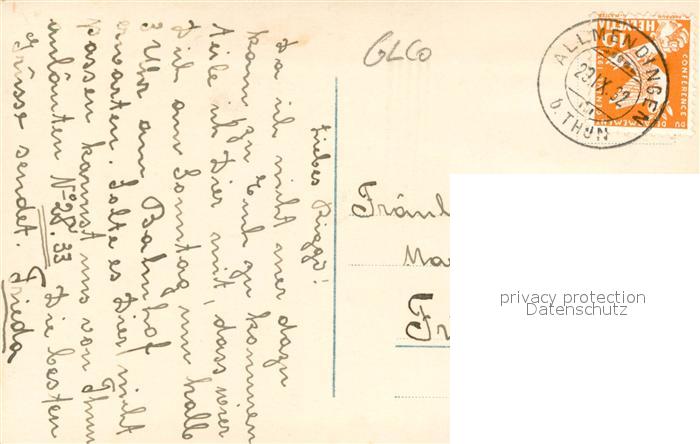 Liebes Rösgi!
Da ich nicht mer dazu
kam zu Euch zu kommen
teile ich Dier mit, dass wier
Dich am Sonntag um halb
3 Uhr am Bahnhof
erwarten. Solte es Dier nicht
passen kannst uns von Thun
anläuten No 28.33 Die besten
Grüsse sendet. Frieda
GLCo
Fräul
Ma
Fr
ALLMENDINGEN
b. THUN
23.IX.32
HELVETIA
10
CONFERENCE
DU DESARMEMENT
privacy protection
Datenschutz